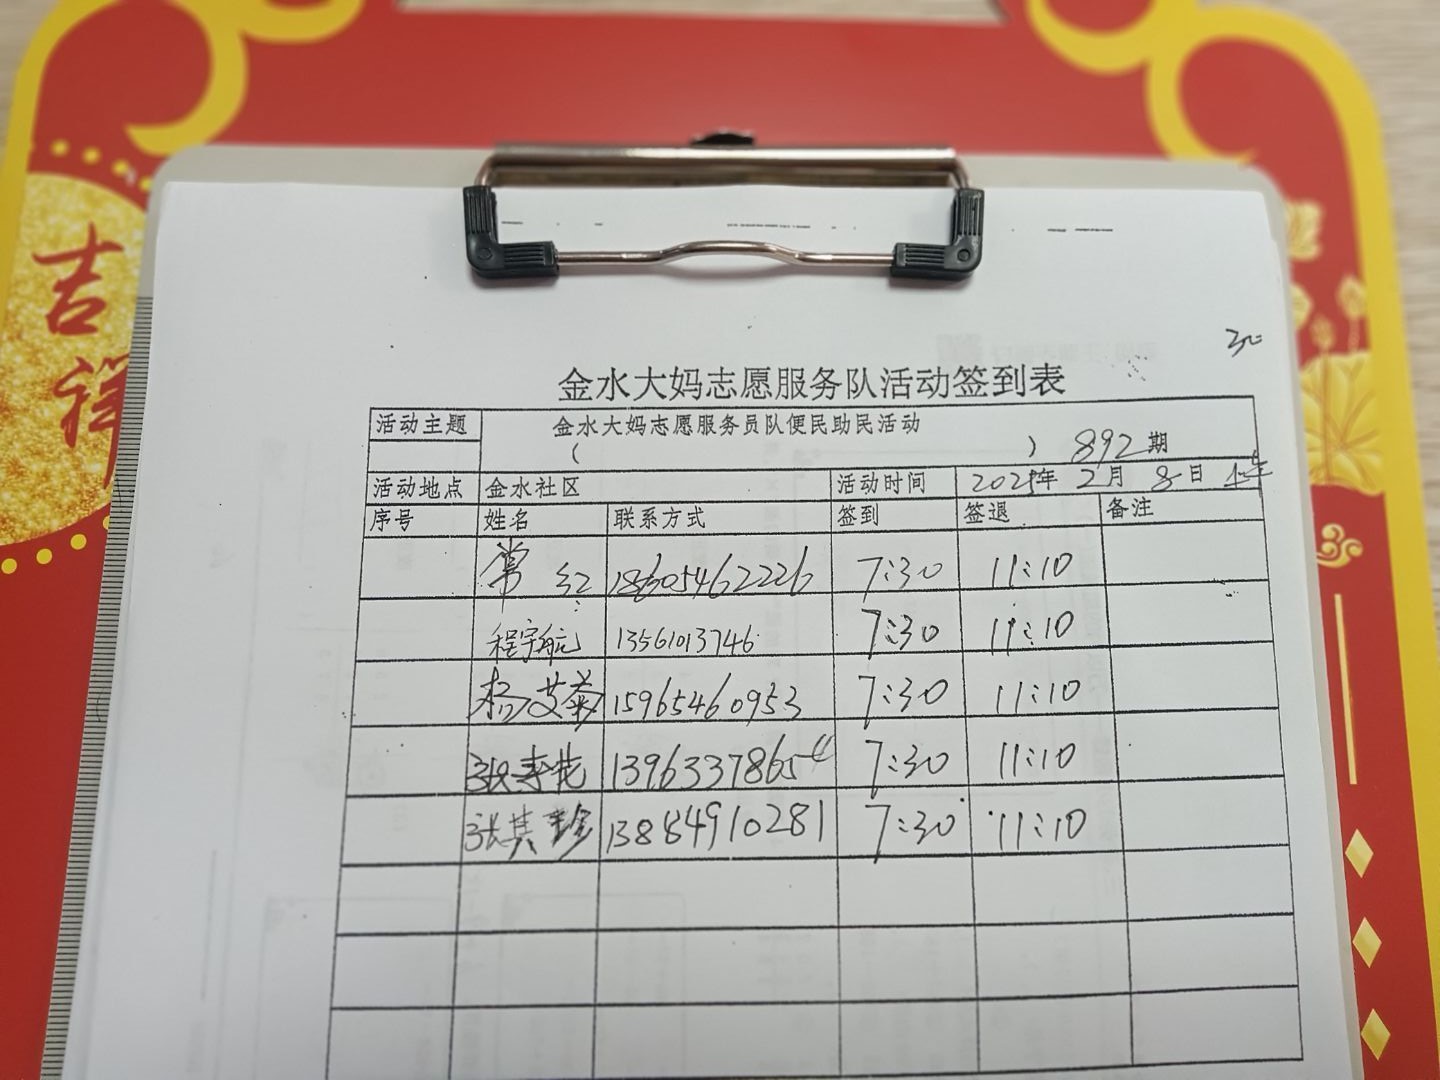 吉祥
30
金水大妈志愿服务队活动签到表
活动主题 金水大妈志愿服务员队便民助民活动
( ) 892期
活动地点 金水社区 活动时间 2025年 2月 8日
序号 姓名 联系方式 签到 签退 备注
常红 18605462226 7:30 11:10
程宇航 13561013746 7:30 11:10
杨艾菊 15965460953 7:30 11:10
张寿先 13963378654 7:30 11:10
张其珍 13884910281 7:30 11:10